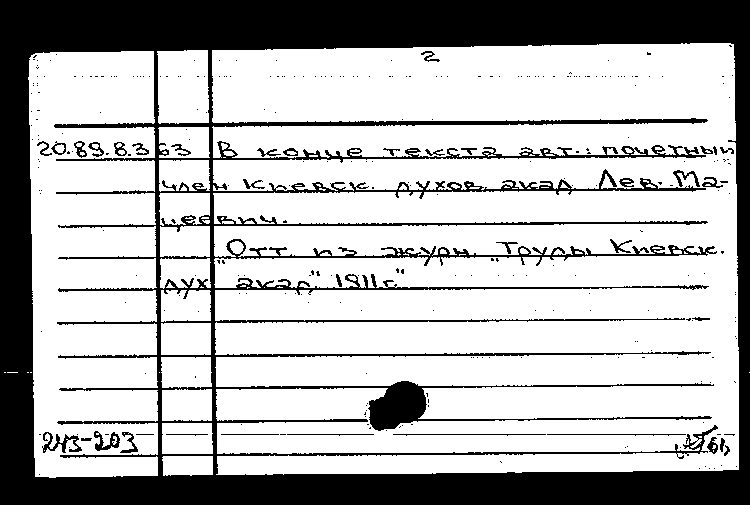 2
20.89.8.363 В конце текста авт.: почетный
член Киевск. духов. акад. Лев. Ма-
цеевич.
"Отт. из журн. "Труды Киевск.
дух. акад." 1911г."
243-203